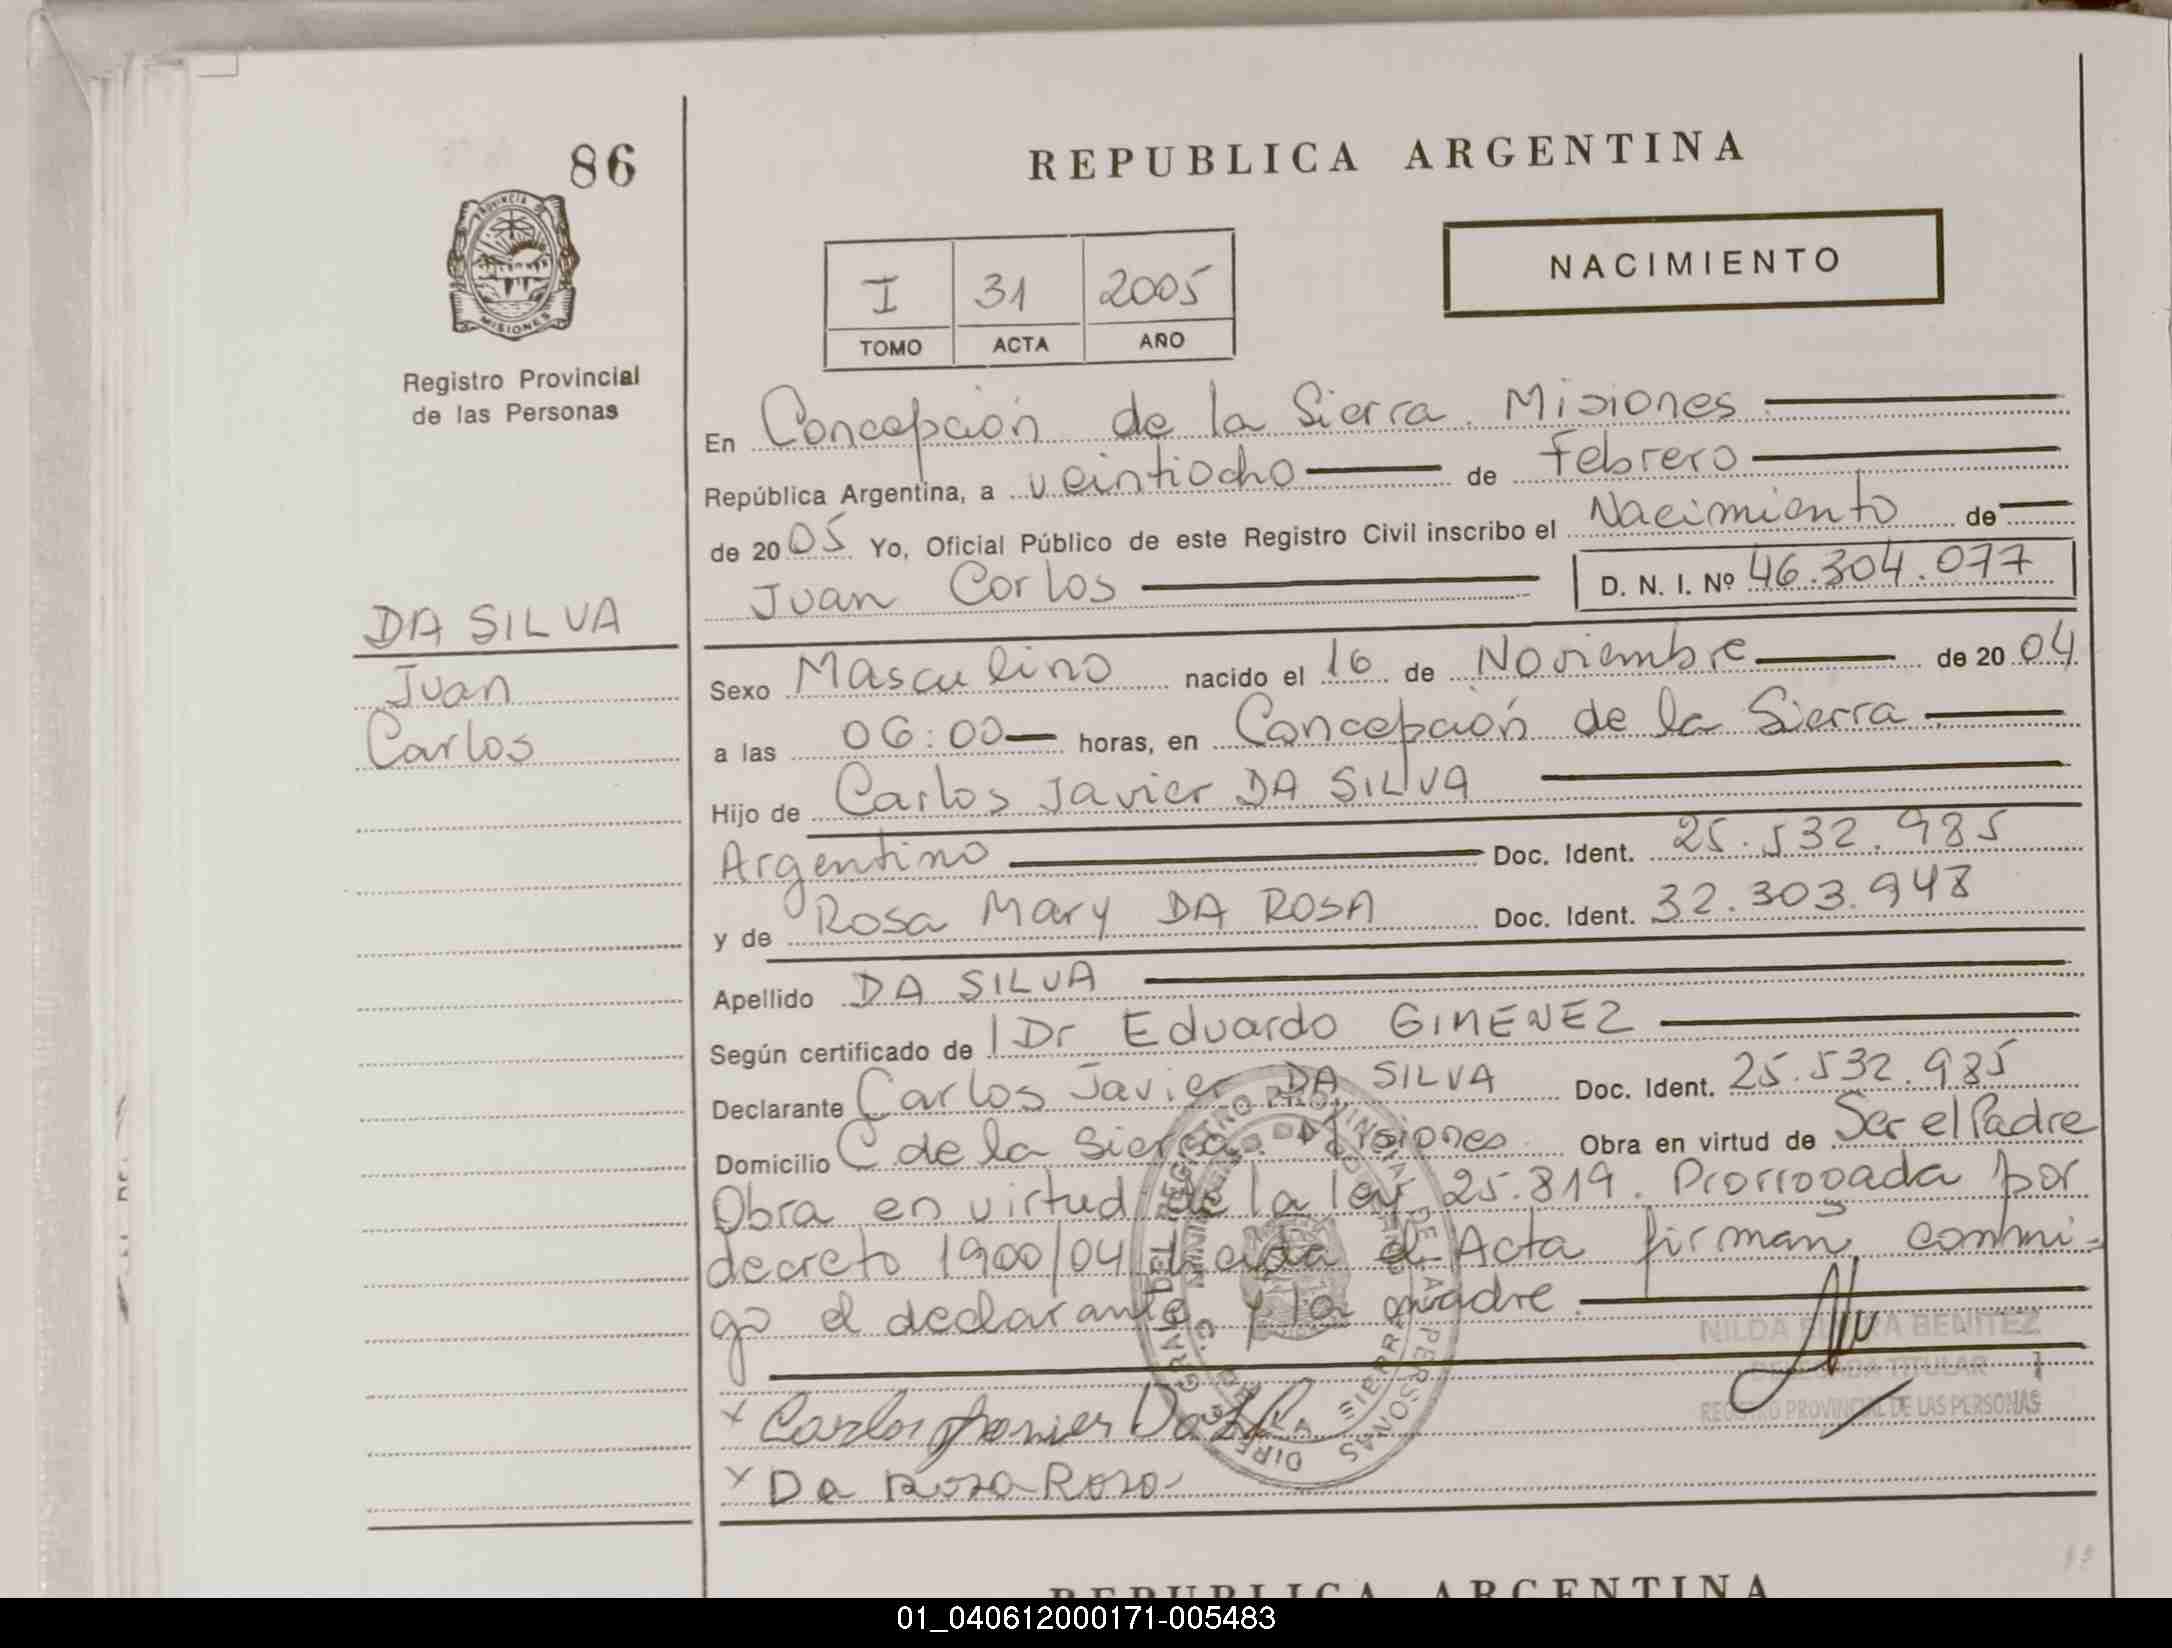 86
REPUBLICA ARGENTINA
PROVINCIA DE
MISIONES
Registro Provincial
de las Personas
I 31 2005
TOMO ACTA AÑO
NACIMIENTO
En Concepción de la Sierra. Misiones
República Argentina, a veintiocho de Febrero
de 2005 Yo, Oficial Público de este Registro Civil inscribo el Nacimiento de
Juan Carlos D. N. I. Nº 46.304.077
DA SILVA
Juan
Carlos
Sexo Masculino nacido el 16 de Noviembre de 2004
a las 06:00 horas, en Concepción de la Sierra
Hijo de Carlos Javier DA SILVA
Argentino Doc. Ident. 25.532.985
y de Rosa Mary DA ROSA Doc. Ident. 32.303.948
Apellido DA SILVA
Según certificado de Dr Eduardo GIMENEZ
Declarante Carlos Javier DA SILVA Doc. Ident. 25.532.985
Domicilio C. de la Sierra. Misiones Obra en virtud de Ser el Padre
Obra en virtud de la ley 25.819. Prorrogada por
decreto 1900/04 Leida el Acta firman, conmi-
go el declarante y la madre.
NILDA BENITEZ
DELEGADA TITULAR
REGISTRO PROVINCIAL DE LAS PERSONAS
x Carlos Javier Da
x Da Rosa Rosa
REPUBLICA ARGENTINA
01_040612000171-005483